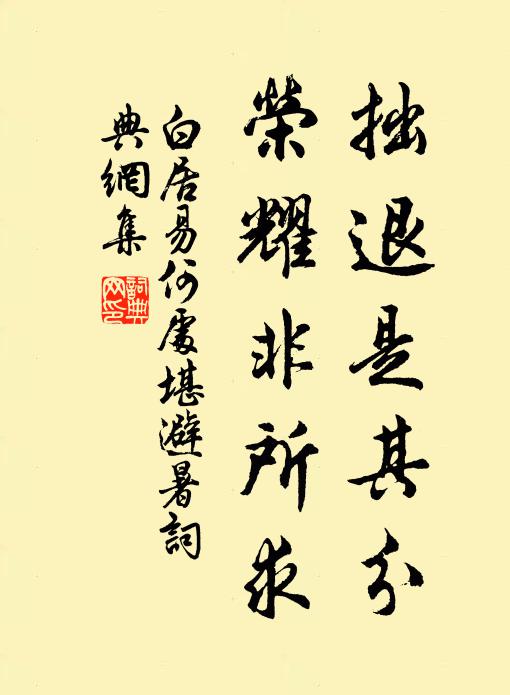 拙退是其分
榮耀非所求
白居易何處堪避暑詞
典網集
詞典
网印